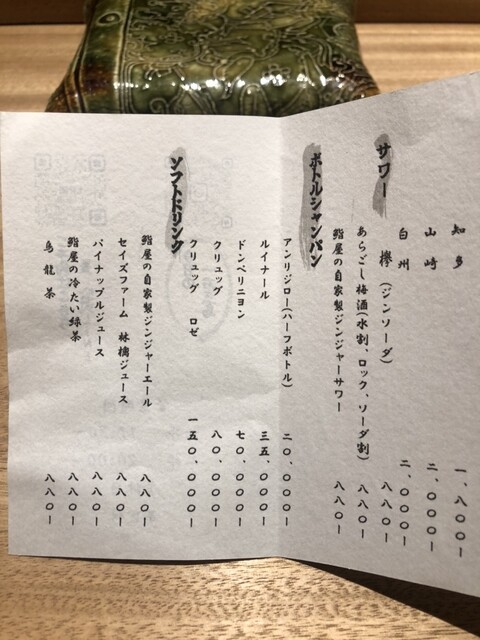 知多 一、八〇〇ー
山崎 二、〇〇〇ー
白州 二、〇〇〇ー
サワー
欅 (ジンソーダ) 八八〇ー
あらごし梅酒(水割、ロック、ソーダ割) 八八〇ー
鮨屋の自家製ジンジャーサワー 八八〇ー
ボトルシャンパン
アンリジロー(ハーフボトル) 二〇、〇〇〇ー
ルイナール 三五、〇〇〇ー
ドンペリニヨン 七〇、〇〇〇ー
クリュッグ 八〇、〇〇〇ー
クリュッグ ロゼ 一五〇、〇〇〇ー
ソフトドリンク
鮨屋の自家製ジンジャーエール 八八〇ー
セイズファーム 林檎ジュース 八八〇ー
パイナップルジュース 八八〇ー
鮨屋の冷たい緑茶 八八〇ー
烏龍茶 八八〇ー